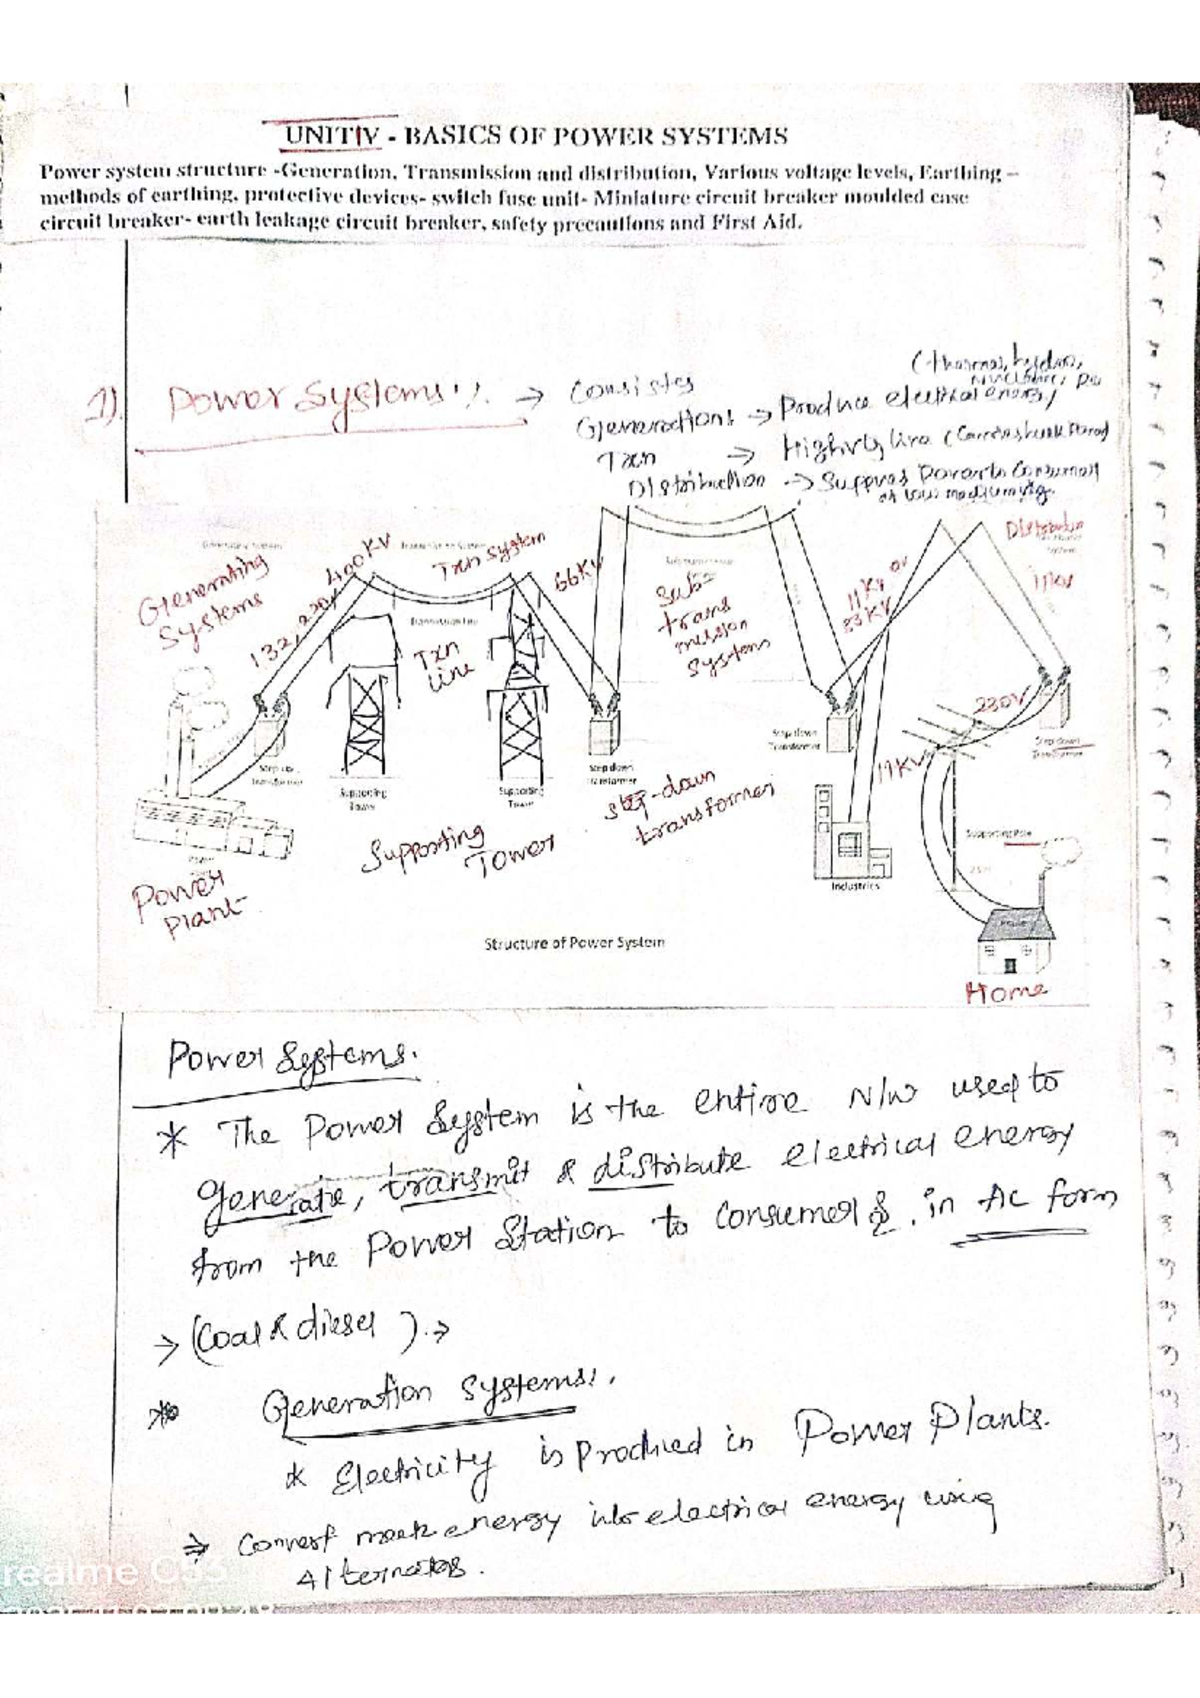 UNIT IV - BASICS OF POWER SYSTEMS
Power system structure -Generation, Transmission and distribution, Various voltage levels, Earthing –
methods of earthing, protective devices- switch fuse unit- Miniature circuit breaker moulded case
circuit breaker- earth leakage circuit breaker, safety precautions and First Aid.
1). Power Systems :. → Consists
(thermal, hydro,
Generations → Produce electrical energy
Txn → High vtg line
Distribution → Supplies Power to Consumers
at low medium vtg.
Generating
Systems
132, 220,
400KV
Txn System
Transmission Line
Txn
line
66KV
Sub-
trans
mission
Systems
11KV or
33KV
Distribution
System
11KV
230V
11KV
Step up
Transformer
Supporting
Tower
Supporting
Tower
Step down
Transformer
Step down
Transformer
Step down
Transformer
Supporting
Tower
Step-down
transformer
Supporting Pole
Industries
Power
Plant
Structure of Power System
Home
Power Systems.
* The Power System is the entire N/W used to
generate, transmit & distribute electrical energy
from the Power Station to Consumers, in AC form
→ (Coal & diesel ). →
* Generation Systems:.
* Electricity is Produced in Power Plants.
⇒ Convert mech energy into electrical energy using
Alternators.
realme C33